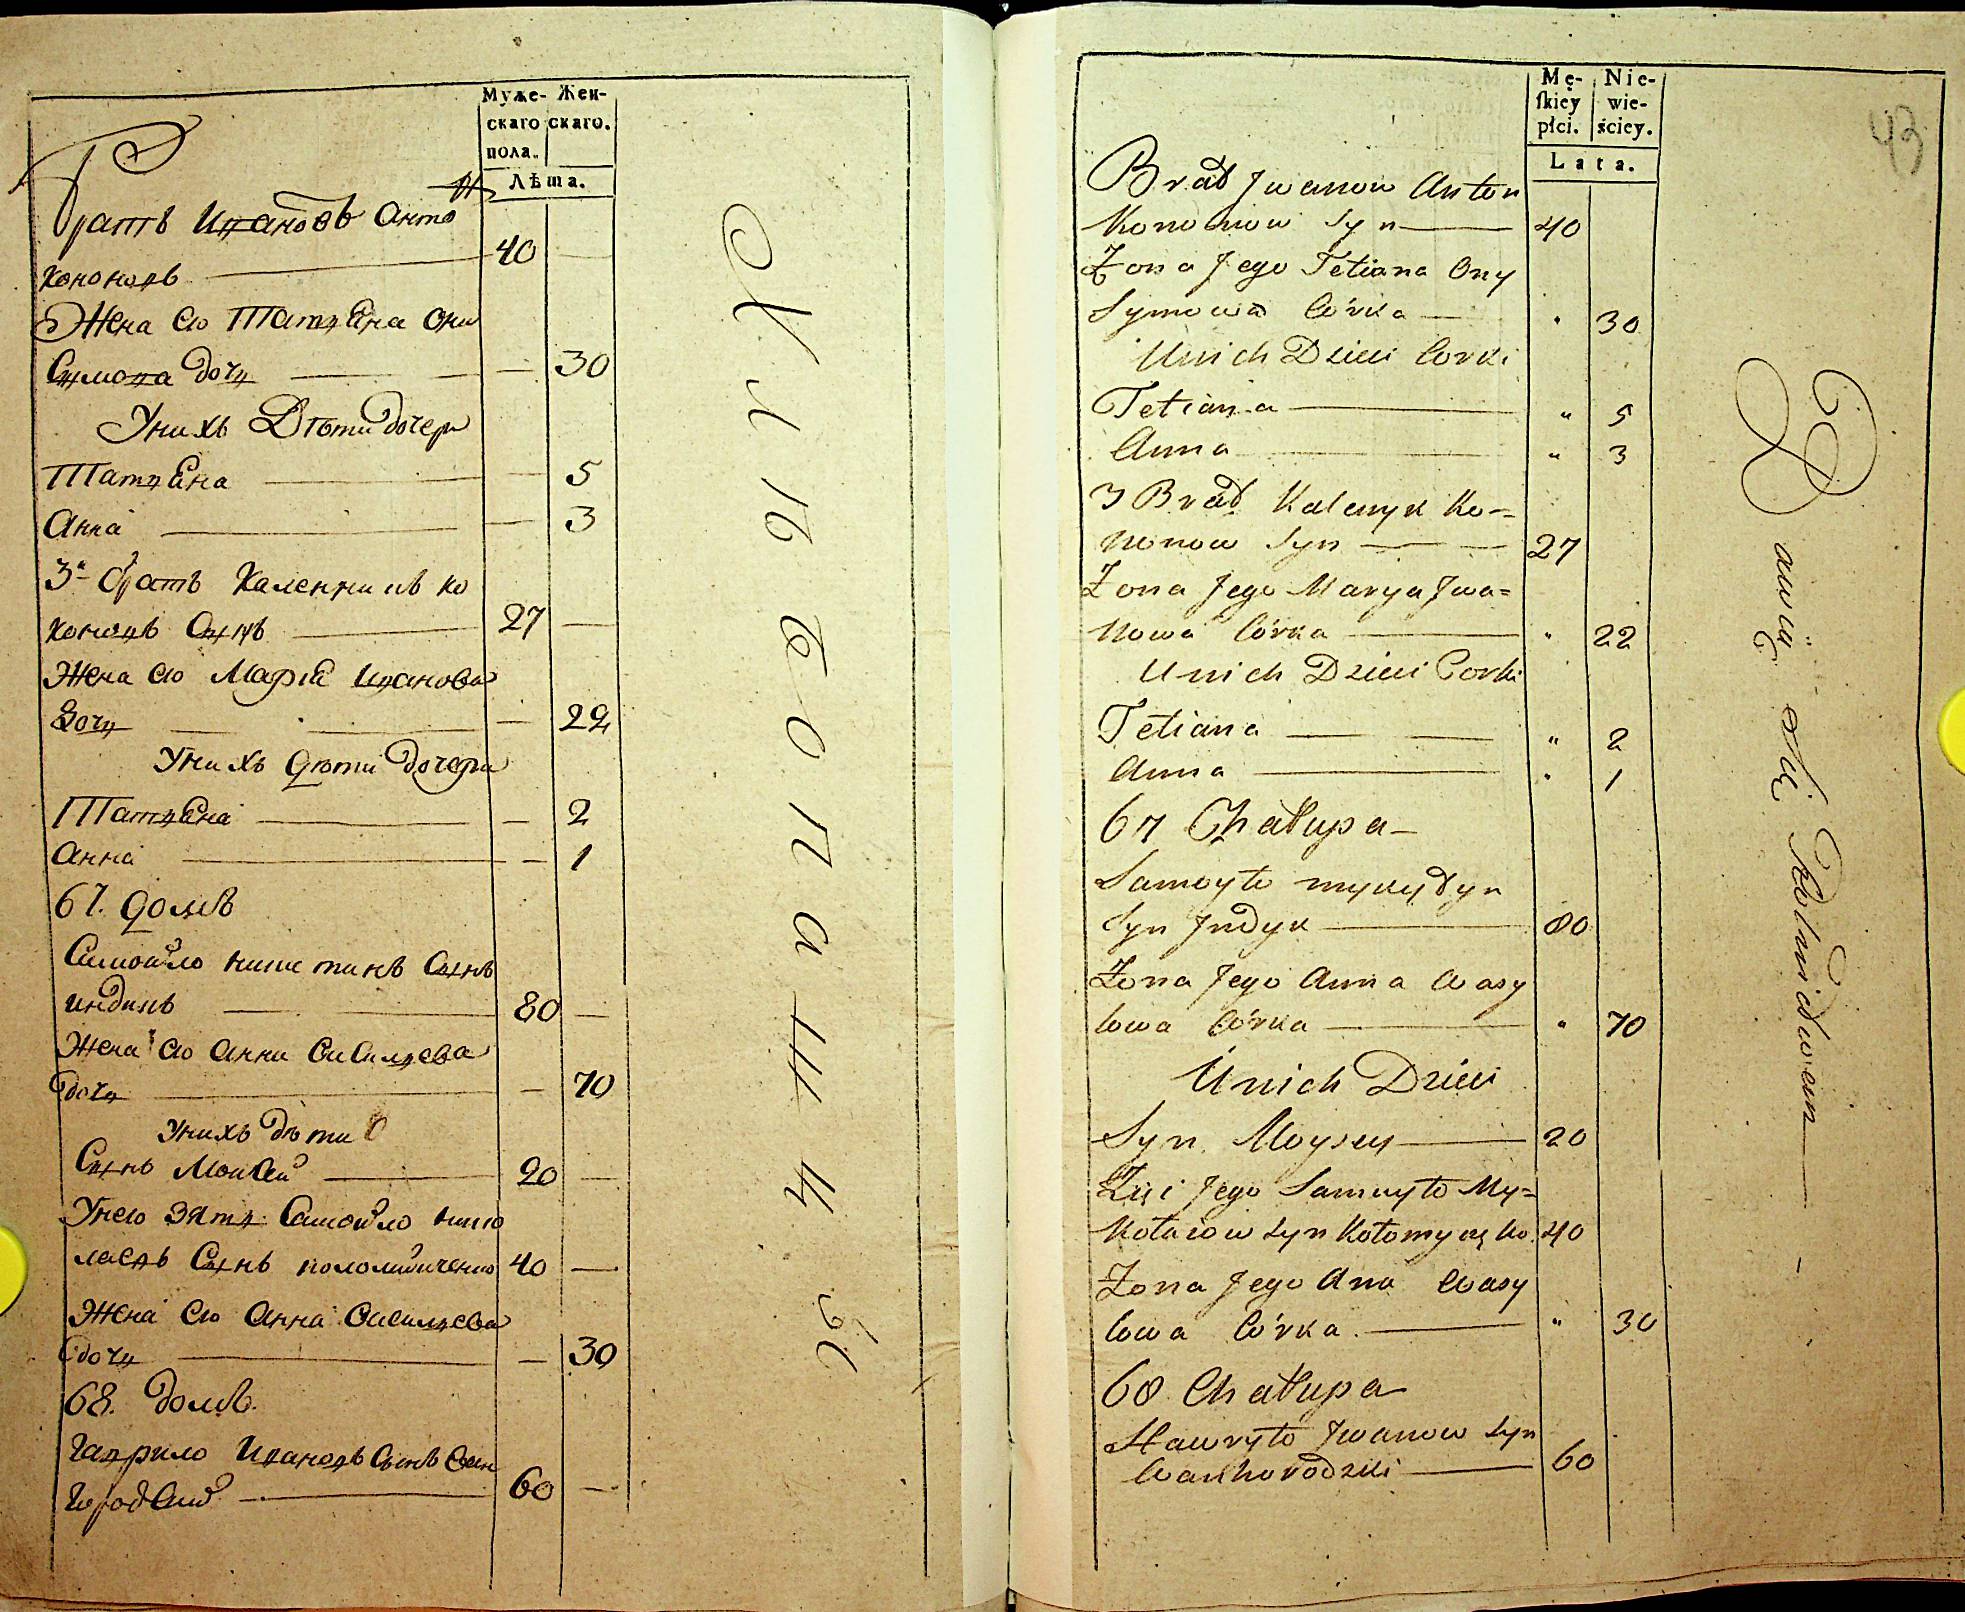 Муже- Жен-
скаго скаго.
пола.
Лѣта.
Братъ Ивановъ Анто
нъ
Кононовъ 40
Жена его Татьяна Они
Симова дочь 30
У нихъ Дѣти дочери
Татьяна 5
Анна 3
3й братъ Каленникъ Ко
ноновъ Сынъ 27
Жена его Марья Иванова
дочь 22
У нихъ дѣти дочери
Татьяна 2
Анна 1
67. домъ
Самойло Сынъ
индикъ 80
Жена его Анна Васильева
дочь 70
У нихъ дѣти
Сынъ Мойсей 20
У него зять Самойло Нико
лаевъ Сынъ 40
Жена его Анна Васильева
дочь 30
68. домъ.
Гаврило Ивановъ Сынъ Ван
городскій 60
43
Mę- Nie-
skiey wie-
płci. ściey.
Lata.
Brat Jwanow Anton
Kononow Syn 40
Żona Jego Tetiana Ony
Symowa Córka " 30
Unich Dzieci Corki
Tetiana " 5
Anna " 3
3 Brat Kalenyk Ko=
nonow Syn 27
Żona Jego Marya Jwa=
nowa Córka " 22
Unich Dzieci Corki
Tetiana " 2
Anna " 1
67 Chałupa
Samoyło Mykytyn
Syn Jndyk 80
Żona Jego Anna Wasy
lowa Córka " 70
Unich Dzieci
Syn Moysey 20
Zięć Jego Samuyło My=
kołaiow Syn Kołomyycęko 40
Żona Jego Ana Wasy
lowa Córka " 30
68 Chałupa
Hawryło Jwanow Syn
Wanhorodzki 60
bawią się Rolnictwem